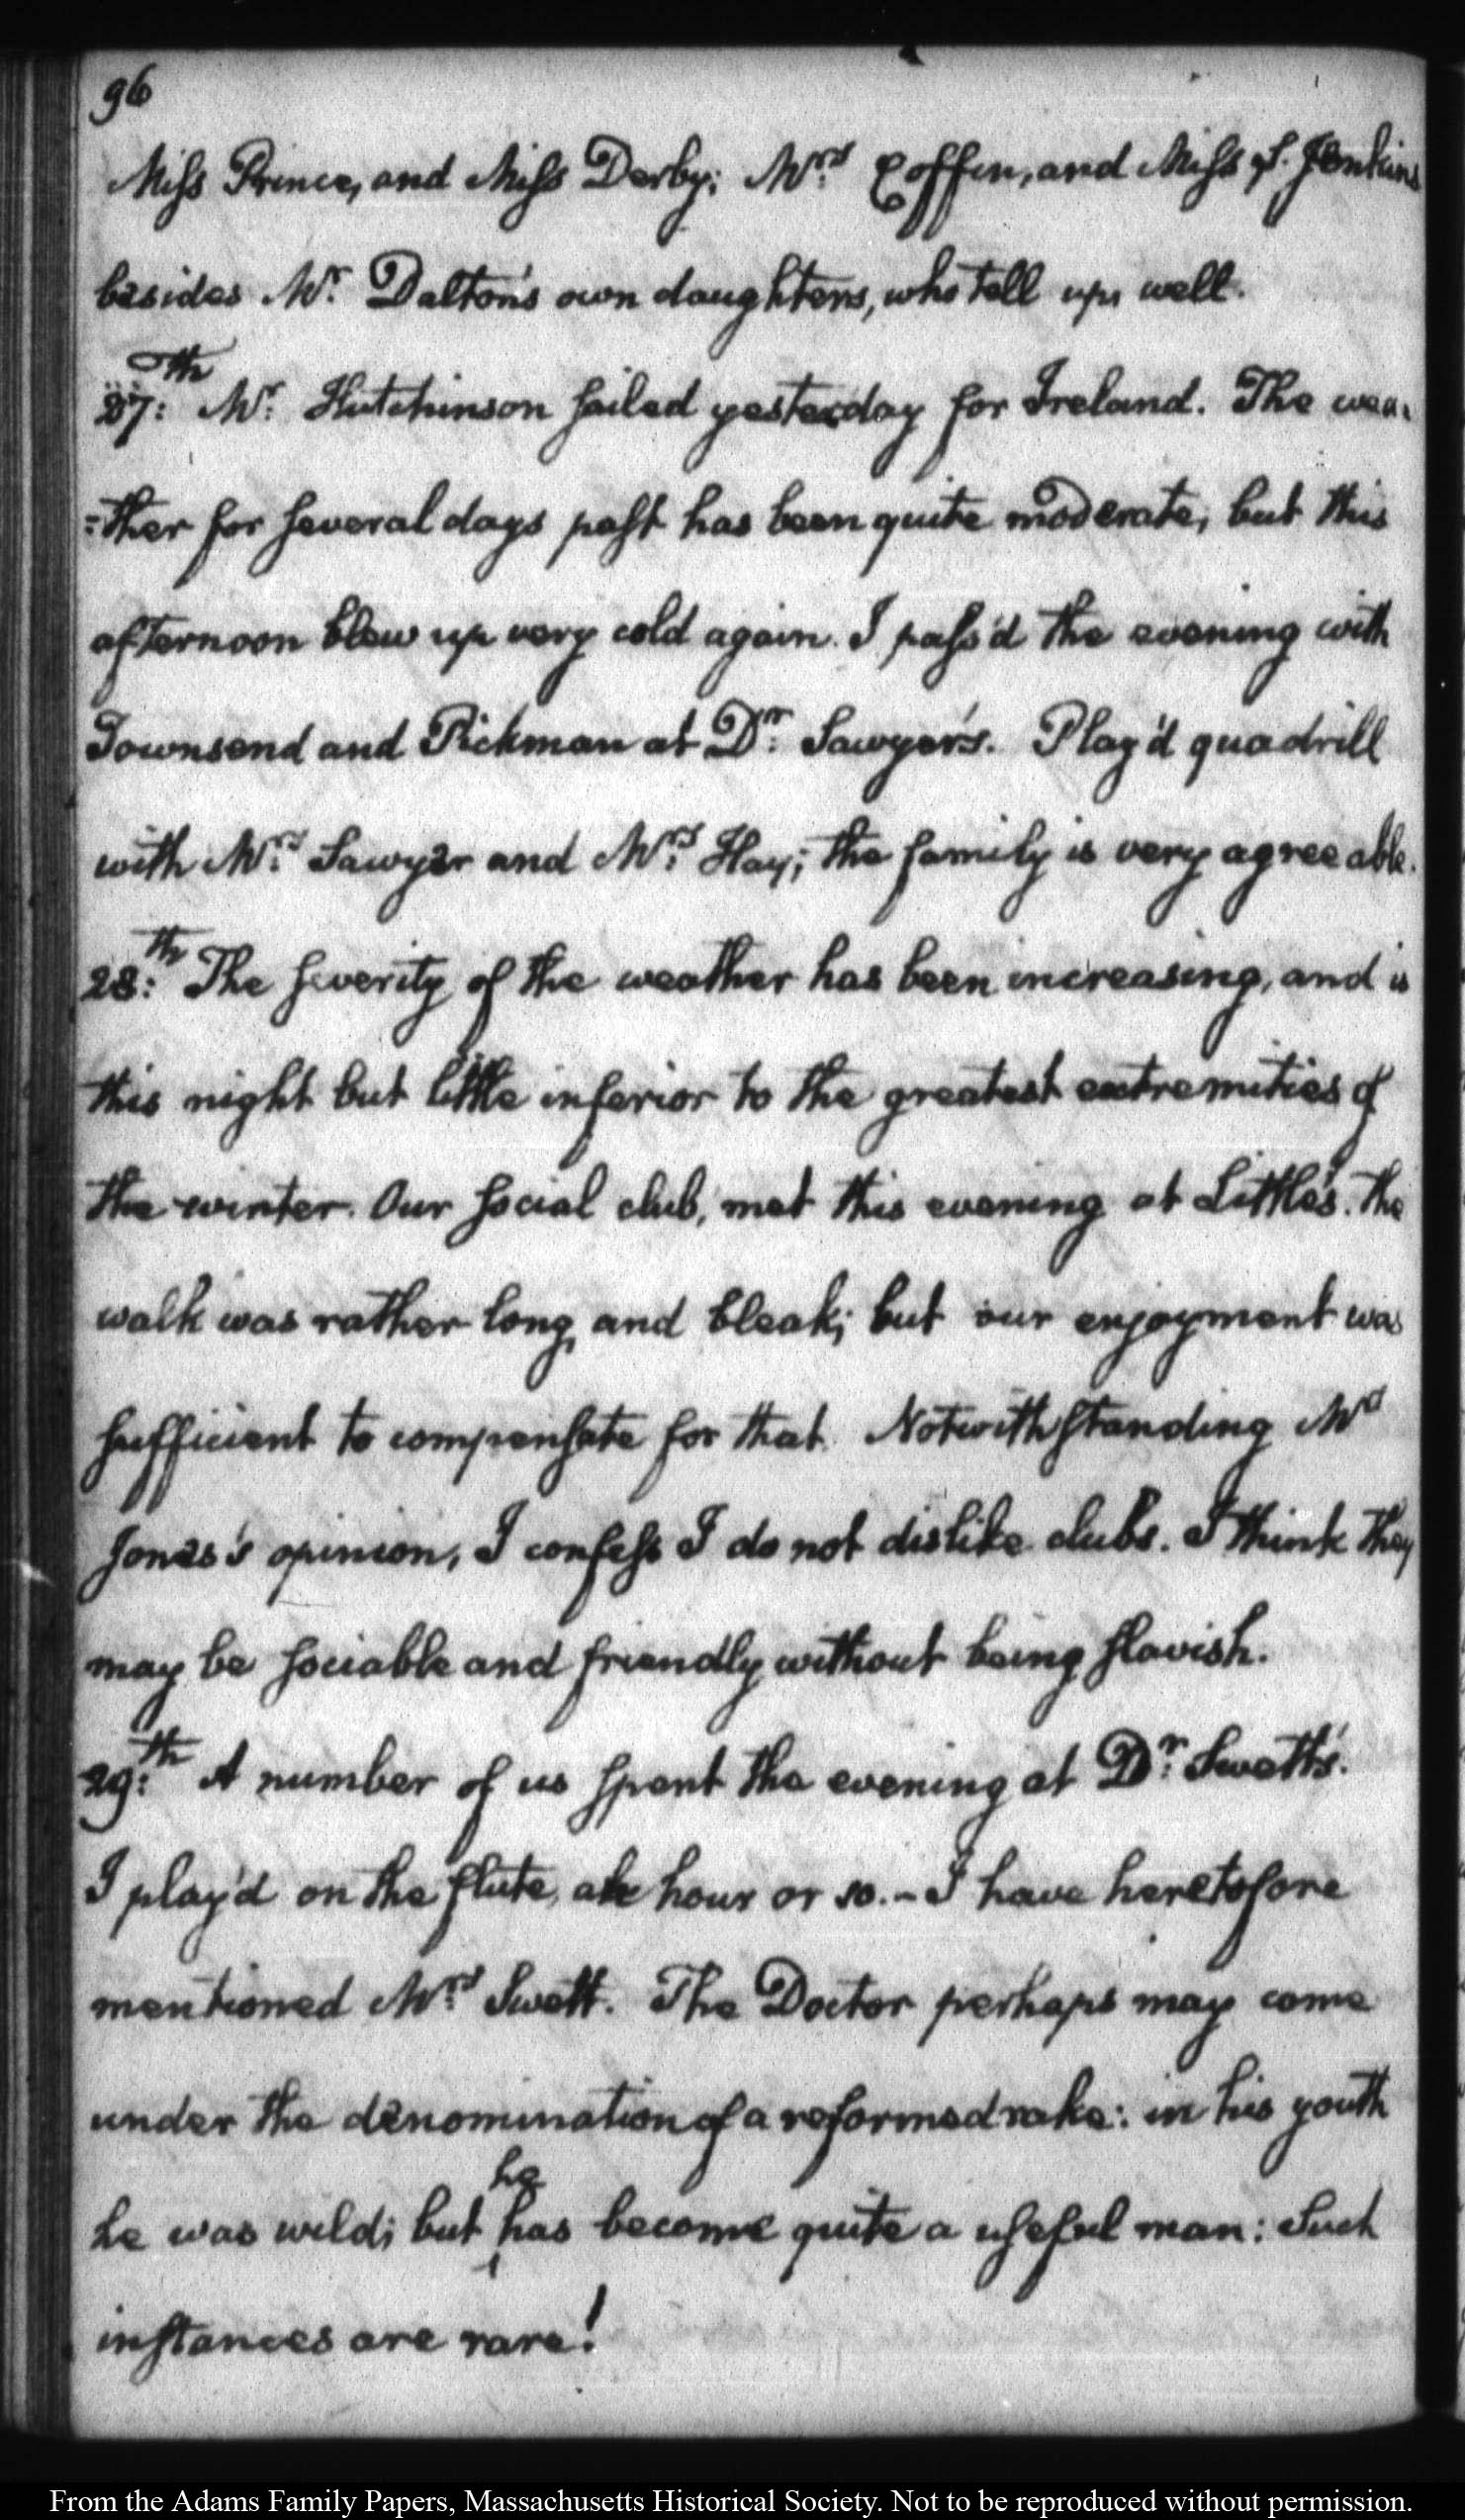 96
Miss Prince, and Miss Derby; Mrs. Coffin, and Miss S. Jenkins
besides Mr. Dalton's own daughters, who tell up well.
27:th Mr. Hutchinson sailed yesterday for Ireland. The wea-
=ther for several days past has been quite moderate, but this
afternoon blew up very cold again. I pass'd the evening with
Townsend and Pickman at Dr. Sawyer's. Play'd quadrill
with Mrs. Sawyer and Mrs. Hay; the family is very agreeable.
28:th The severity of the weather has been increasing, and is
this night but little inferior to the greatest extremities of
the winter. Our social club, met this evening at Little's. the
walk was rather long, and bleak; but our enjoyment was
sufficient to compensate for that. Notwithstanding Mrs
Jones's opinion, I confess I do not dislike clubs. I think they
may be sociable and friendly without being slavish.
29:th A number of us spent the evening at Dr. Swett's.
I play'd on the flute, hour or so. - I have heretofore
mentioned Mrs. Swett. The Doctor perhaps may come
under the denomination of a reformed rake: in his youth
he was wild; but he has become quite a useful man: Such
instances are rare!
From the Adams Family Papers, Massachusetts Historical Society. Not to be reproduced without permission.